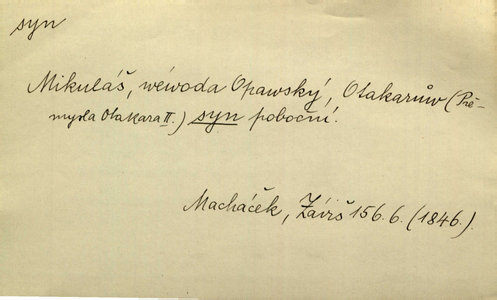 syn
Mikuláš, wéwoda Opawský, Otakarůw (Pře-
mysla Otakara II.) syn poboční.
Macháček, Záviš 156.6. (1846.)